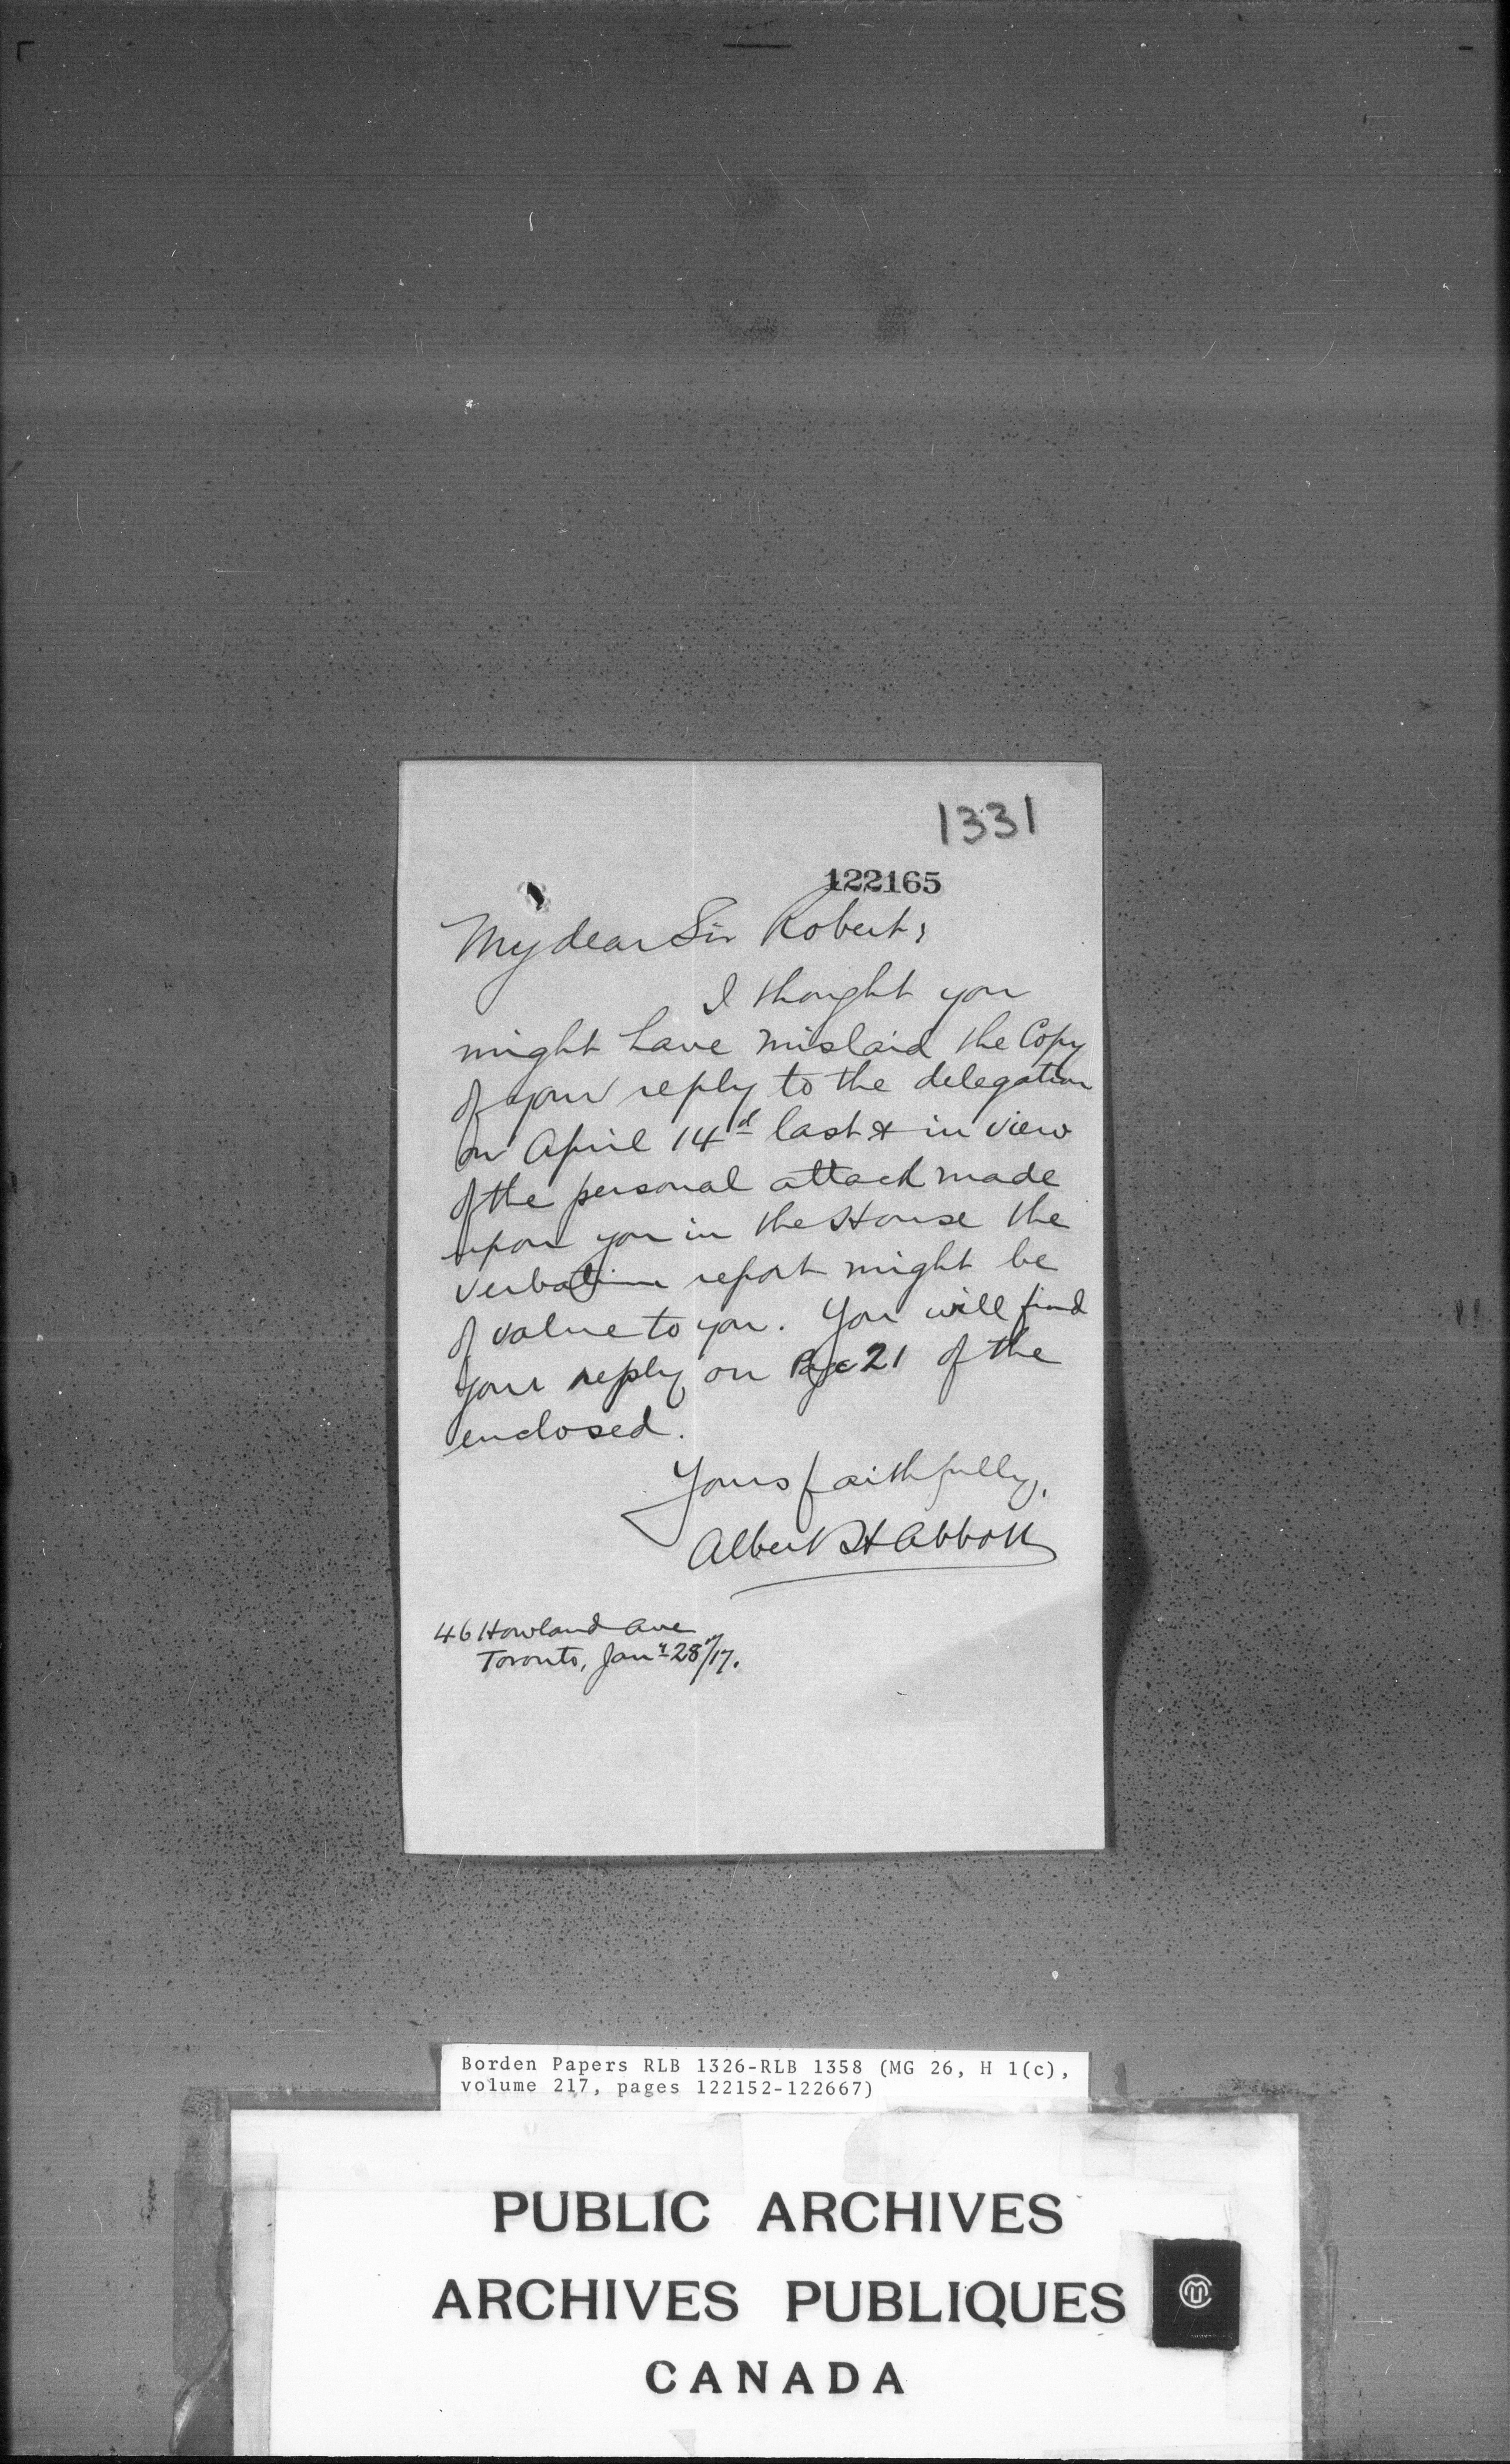 1331
122165
My dear Sir Robert,
I thought you
might have mislaid the Copy
of your reply to the delegation
on April 14th last & in view
of the personal attack made
upon you in the House the
verbatim report might be
of value to you. You will find
your reply on Page 21 of the
enclosed.
Yours faithfully,
Albert H Abbott
46 Howland Ave
Toronto, Jany 28th/17.
Borden Papers RLB 1326-RLB 1358 (MG 26, H 1(c),
volume 217, pages 122152-122667)
PUBLIC ARCHIVES
ARCHIVES PUBLIQUES
CANADA